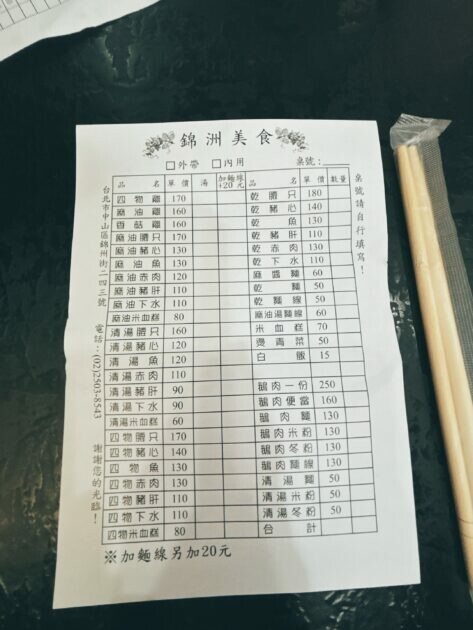 錦洲美食
□外帶 □內用 桌號：
品名 單價 湯 加麵線+20元
四物雞 170
麻油雞 160
香菇雞 160
麻油腰只 170
麻油豬心 130
麻油魚 130
麻油赤肉 120
麻油豬肝 110
麻油下水 110
麻油米血糕 80
清湯腰只 160
清湯豬心 120
清湯魚 120
清湯赤肉 110
清湯豬肝 90
清湯下水 90
清湯米血糕 60
四物腰只 170
四物豬心 140
四物魚 130
四物赤肉 130
四物豬肝 110
四物下水 110
四物米血糕 80
品名 單價 數量
乾腰只 180
乾豬心 140
乾魚 130
乾豬肝 110
乾赤肉 130
乾下水 110
麻醬麵 60
乾麵 50
乾麵線 50
麻油湯麵線 60
米血糕 70
燙青菜 50
白飯 15
鵝肉一份 250
鵝肉便當 160
鵝肉麵 130
鵝肉米粉 130
鵝肉冬粉 130
鵝肉麵線 130
清湯麵 50
清湯米粉 50
清湯冬粉 50
合計
※加麵線另加20元
桌號請自行填寫！
台北市中山區錦州街二四三號 電話：(02)2503-8543 謝謝您的光臨！